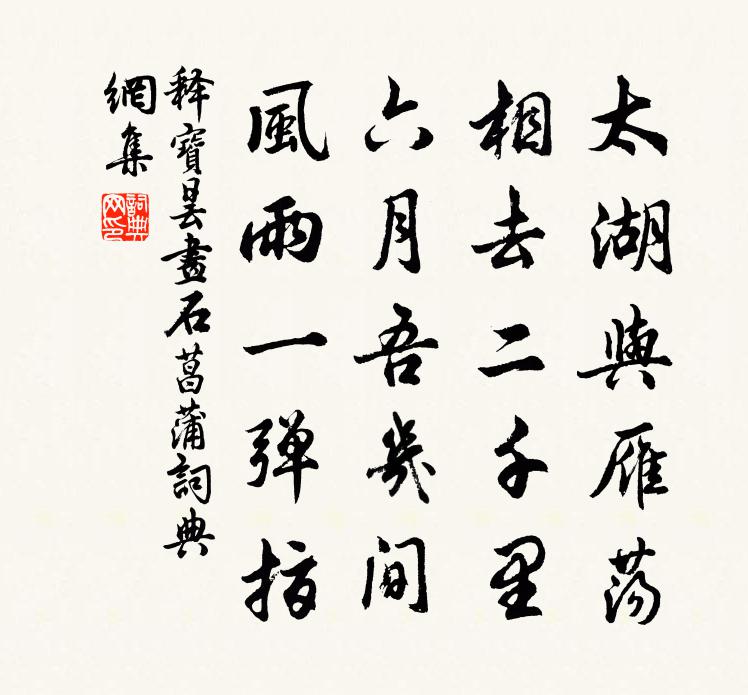 太湖與雁蕩
相去二千里
六月吾幾間
風雨一彈指
释寶曇畫石菖蒲詞典
網集
詞典
网印